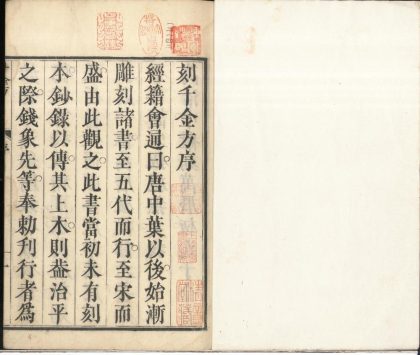 刻千金方序
經籍會通曰唐中葉以後始漸
雕刻諸書至五代而行至宋而
盛由此觀之此書當初未有刻
本鈔錄以傳其上木則葢治平
之際錢象先等奉勅刊行者爲